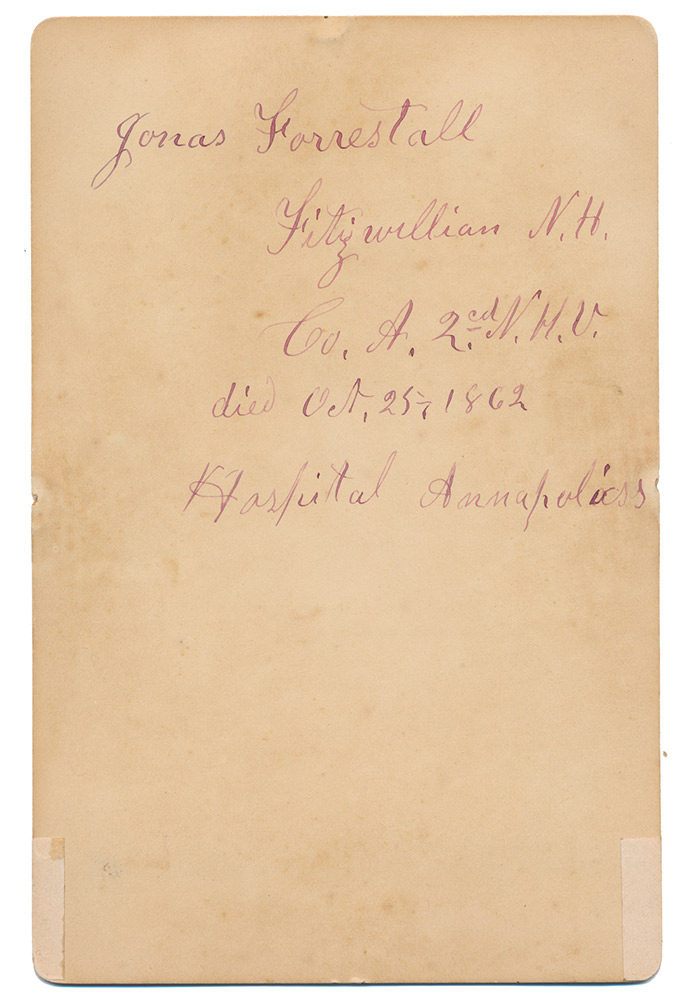 Jonas Forrestall
Fitzwillian N.H.
Co. A. 2nd N.H.V.
died Oct, 25, 1862
Hospital Annapoliss